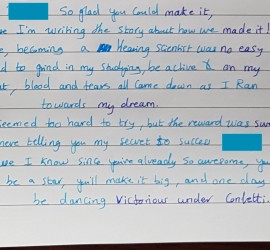 So glad you could make it,
I'm writing the story about how we made it!
becoming a Hearing Scientist was no easy
to grind in my studying, be active & on my
blood and tears all came down as I Ran
towards my dream.
seemed too hard to try, but the reward was
here telling you my secret to succes
we I know since you're already so awesome, you
be a star, you'll make it big, and one day
be dancing Victorious under Confetti.